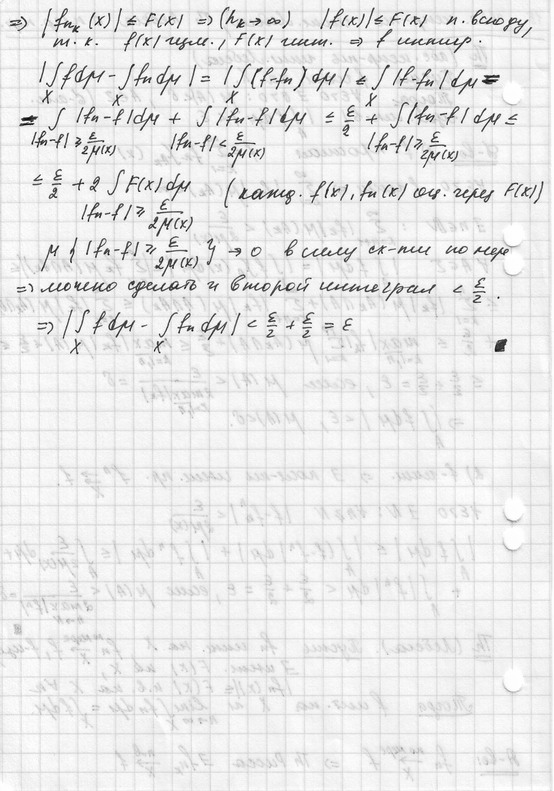 ⇒ |fₙₖ(x)| ≤ F(x) ⇒ (hₖ→∞) |f(x)| ≤ F(x) п. всюду,
т.к. f(x) изм., F(x) инт. ⇒ f интегр.
|∫_X f dμ − ∫_X fₙ dμ| = |∫_X (f−fₙ) dμ| ≤ ∫_X |f−fₙ| dμ =
= ∫_{|fₙ−f| ≥ ε/2μ(X)} |fₙ−f| dμ + ∫_{|fₙ−f| < ε/2μ(X)} |fₙ−f| dμ ≤ ε/2 + ∫_{|fₙ−f| ≥ ε/2μ(X)} |fₙ−f| dμ ≤
≤ ε/2 + 2 ∫_{|fₙ−f| ≥ ε/2μ(X)} F(x) dμ (кажд. f(x), fₙ(x) оц. через F(x))
μ{|fₙ−f| ≥ ε/2μ(X)} → 0 в силу сх-ти по мере
⇒ можно сделать и второй интеграл < ε/2.
⇒ |∫_X f dμ − ∫_X fₙ dμ| < ε/2 + ε/2 = ε